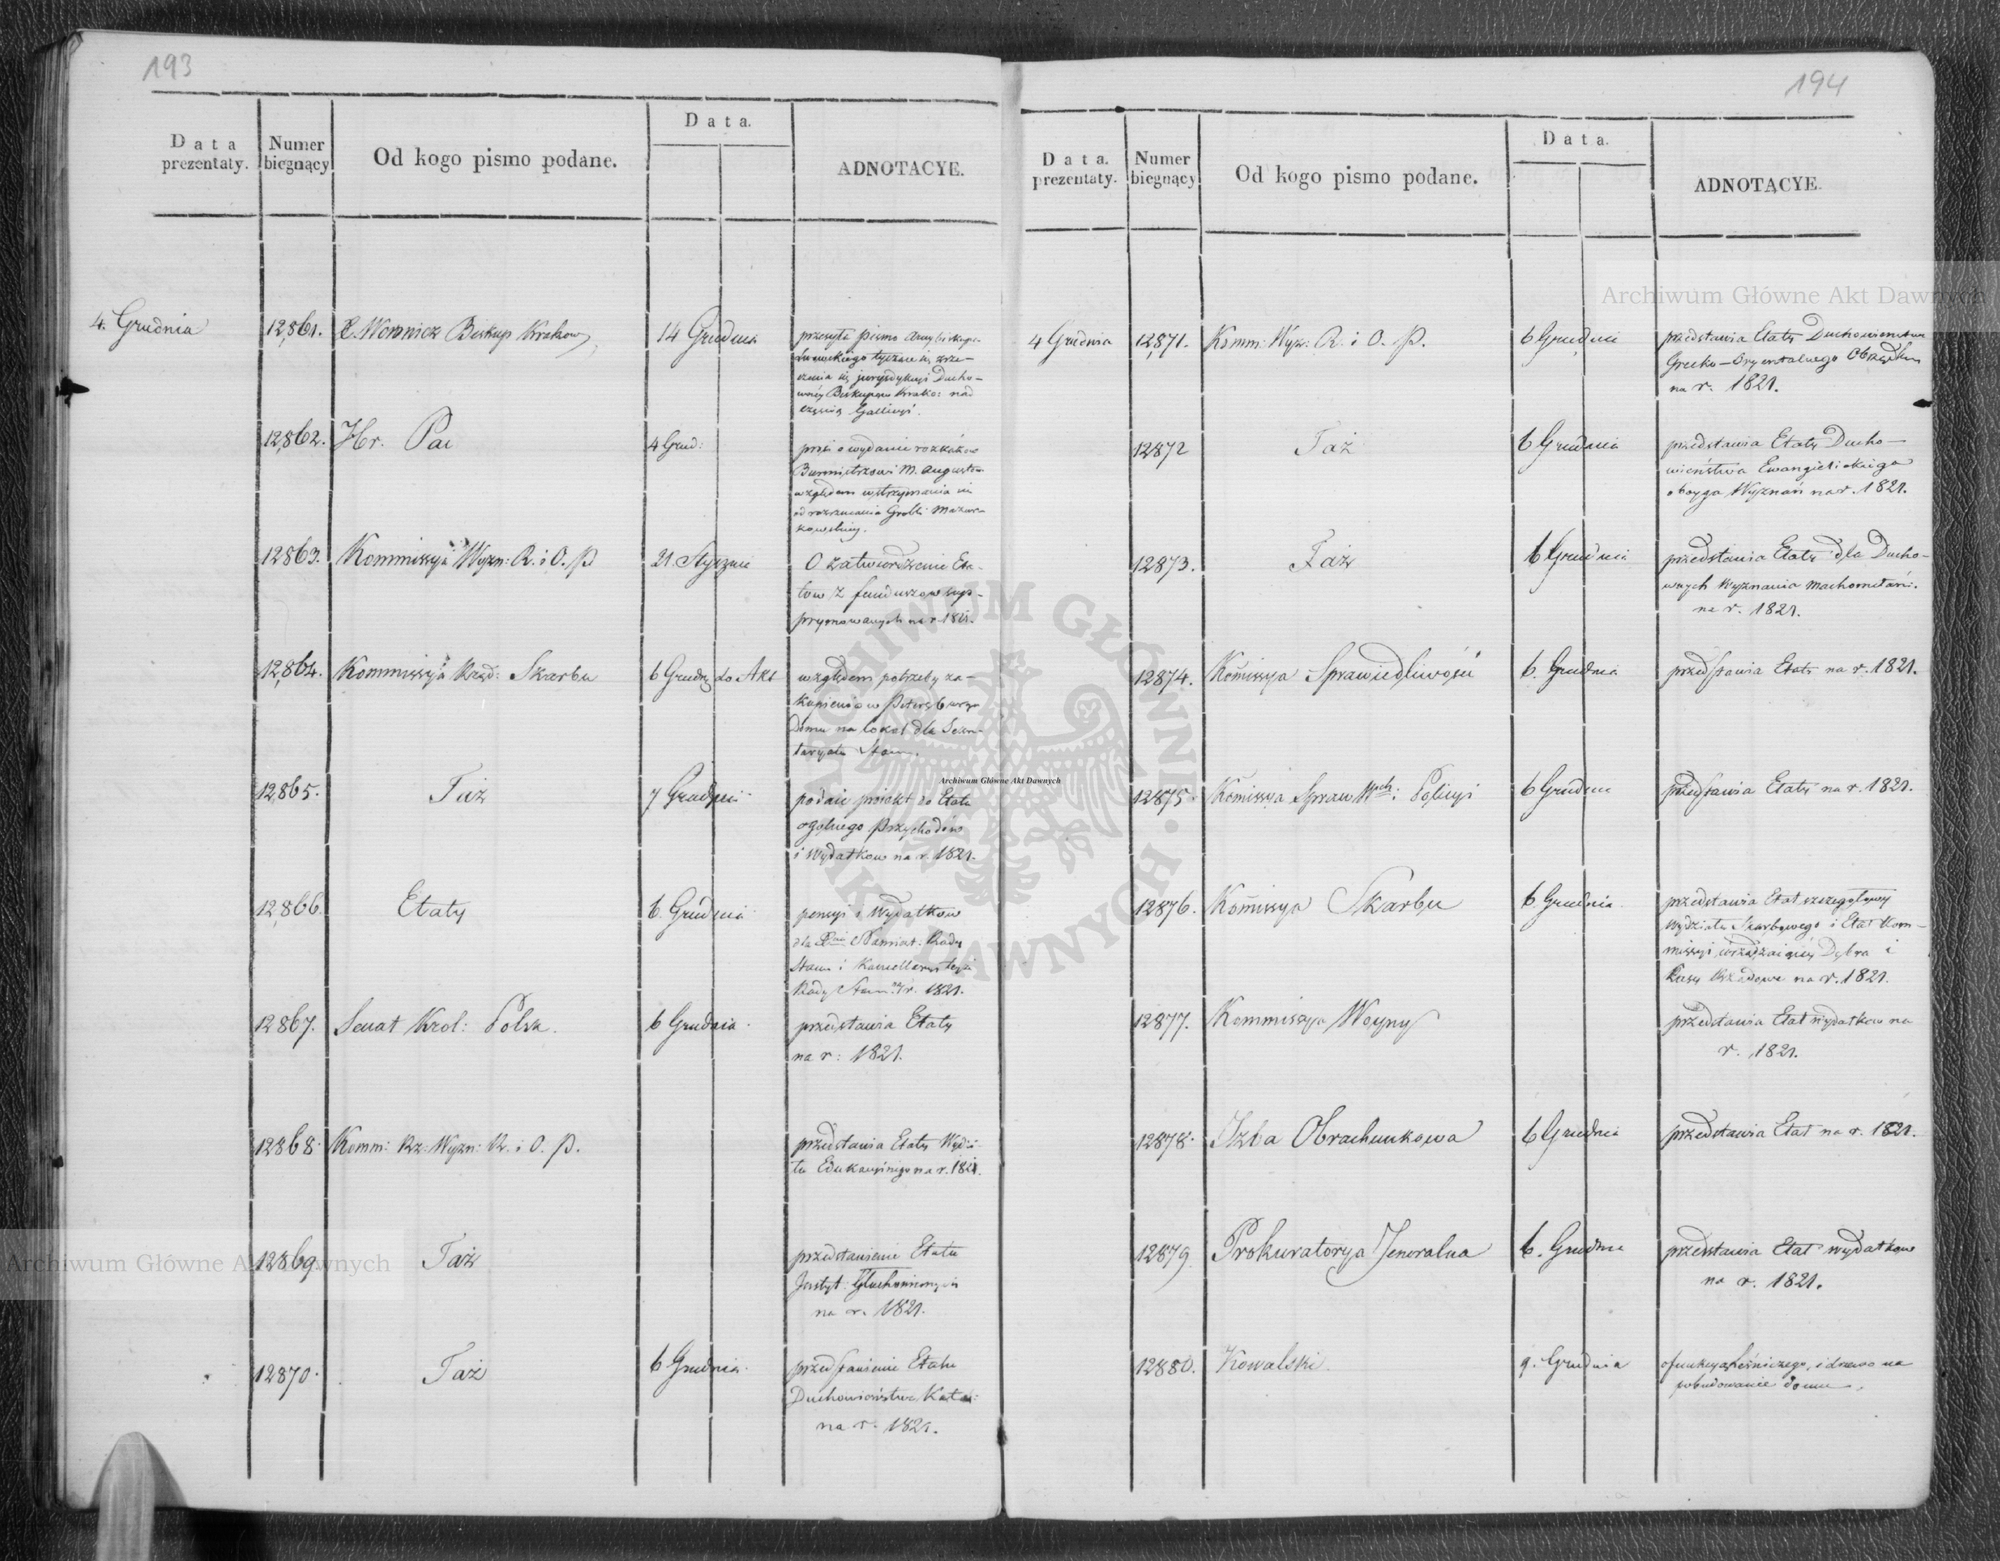 193
Data prezentaty.
Numer biegnący
Od kogo pismo podane.
Data.
ADNOTACYE.
4. Grudnia
12,861. Woronicz Biskup Krakow
14 Grudnia
przesyła pismo Arcybiskupa
Lwowskiego tyczące się zrze-
czenia się jurysdykcyi Ducho-
wnéy Biskupów Krako: nad
częścią Gallicyi.
12,862. Hr. Pac
4 Grud:
prosi o wydanie rozkazów
Burmistrzowi M. Augustowa
względem wstrzymania się
od
12,863. Kommissya Wyzn: R. i O. P
21. Stycznia
O zatwierdzenie Eta-
tow z funduszow supp-
prymowanych na r. 1821.
12,864. Kommissya Rząd: Skarbu
6 Grudn do Akt
względem potrzeby za-
kupienia w Petersburgu
Domu na lokal dla Sekre-
taryatu Stanu.
12,865. Taż
7 Grudnia
podaie proiekt do Etatu
ogólnego Przychodów
i Wydatkow na r. 1821.
12,866 Etaty
6. Grudnia
pensyi i Wydatkow
dla Namiest: Rady
Stanu i Kancellaryi teyże
Rady Stanu na r. 1821.
12867. Senat Krol: Polsk.
6 Grudnia.
przedstawia Etaty
na r: 1821.
12868. Komm: Rz: Wyzn: R. i O. P.
przedstawia Etaty Wydzia-
łu Edukacyinego na r. 1821.
12869 Taż
przedstawienie Etatu
Instyt: Głuchoniemych
na r. 1821.
12870. Taż
6 Grudnia.
przedstawienie Etatu
Duchowieństwa Katol:
na r. 1821.
194
Data. prezentaty.
Numer biegnący
Od kogo pismo podane.
Data.
ADNOTACYE.
4 Grudnia
12,871. Komm: Wyz: R. i O. P.
6 Grudnia
przedstawia Etaty Duchowieństwa
Grecko-Oryentalnego Obrządku
na r. 1821.
12872 Taż
6 Grudnia
przedstawia Etaty Ducho-
wieństwa Ewangielickiego
oboyga Wyznań na r. 1821.
12873. Taż
6 Grudnia
przedstawia Etaty dla Ducho-
wnych Wyznania Machometań:
na r. 1821.
12874. Kom̃issya Sprawiedliwości
6. Grudnia
przedstawia Etaty na r. 1821.
12875 Kom̃issya Spraw Wch i Policyi
6 Grudnia
przedstawia Etaty na r. 1821.
12876. Kom̃issya Skarbu
6 Grudnia
przedstawia Etat szczegółowy
Wydziału Skarbowego i Etat Kom-
missyi urządzaiącéy Dobra i
Lasy Rządowe na r. 1821.
12877. Kommissya Woyny
przedstawia Etat wydatkow na
r. 1821.
12878. Izba Obrachunkowa
6 Grudnia
przedstawia Etat na r. 1821.
12879 Prokuratorya Jeneralna
6. Grudnia
przedstawia Etat wydatkow
na r. 1821.
12880. Kowalski.
9. Grudnia
o funkcyą Leśniczego, i drzewo na
pobudowanie domu.
Archiwum Główne Akt Dawnych
Archiwum Główne Akt Dawnych
Archiwum Główne Akt Dawnych
ARCHIWUM GŁÓWNE AKT DAWNYCH